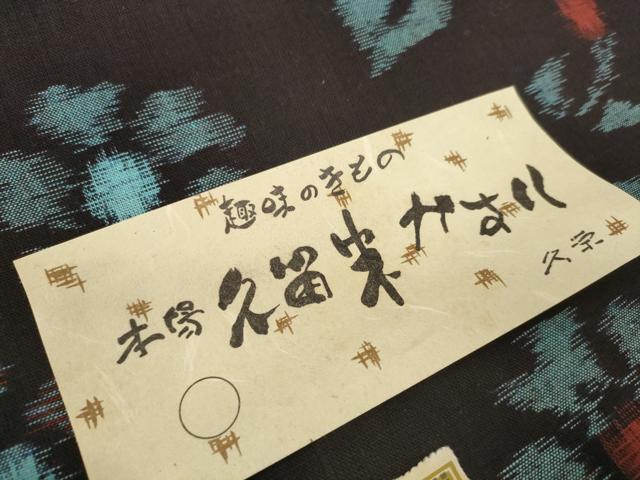 趣味のきもの
本場久留米かすり